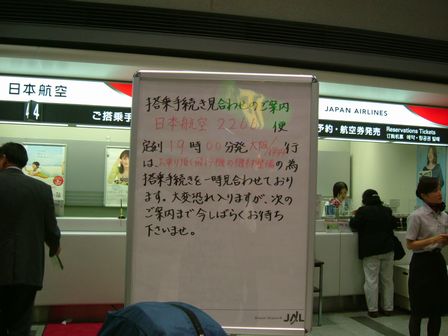 日本航空
14
ご搭乗手
JAPAN AIRLINES
予約・航空券発売
Reservations Tickets
搭乗手続き見合わせのご案内
日本航空 2266 便
定刻 19時00分発 大阪 行
は、お乗り頂く飛行機の機材整備の為
搭乗手続きを一時見合わせており
ます。大変恐れ入りますが、次の
ご案内まで今しばらくお待ち
下さいませ。
JAL